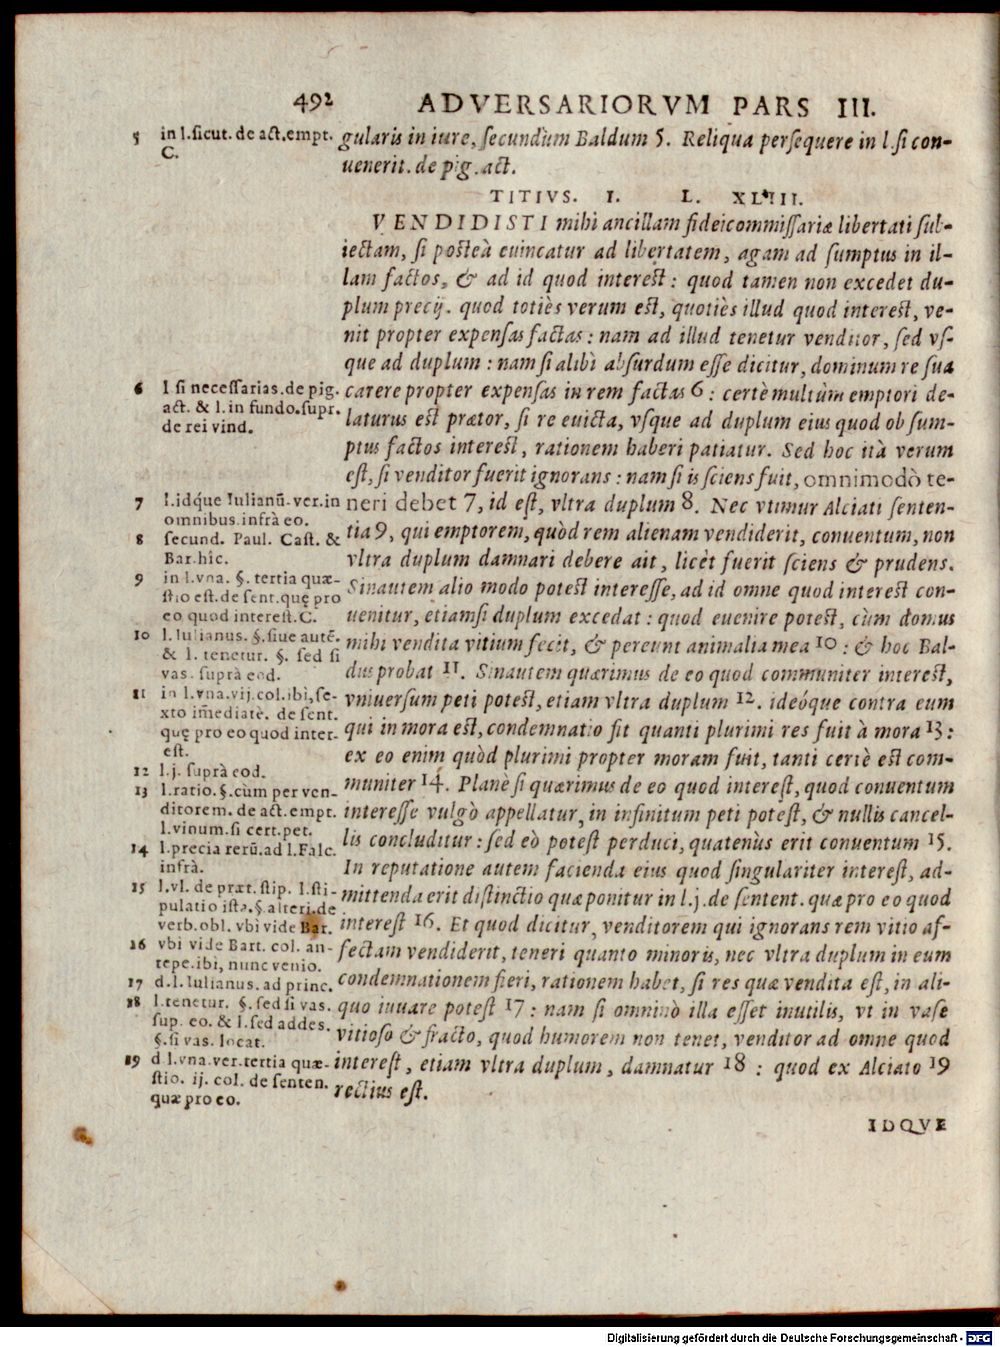 492 ADVERSARIORVM PARS III.
gularis in iure, ſecundùm Baldum 5. Reliqua perſequere in l. ſi con-
uenerit. de pig. act.
TITIVS. I. L. XLIII.
VENDIDISTI mihi ancillam fideicommiſſariæ libertati ſub-
iectam, ſi poſteà euincatur ad libertatem, agam ad ſumptus in il-
lam factos, & ad id quod intereſt: quod tamen non excedet du-
plum precij. quod totiès verum eſt, quotiès illud quod intereſt, ve-
nit propter expenſas factas: nam ad illud tenetur venditor, ſed vſ-
que ad duplum: nam ſi alibì abſurdum eſſe dicitur, dominum re ſua
carere propter expenſas in rem factas 6: certè multùm emptori de-
laturus eſt prætor, ſi re euicta, vſque ad duplum eius quod ob ſum-
ptus factos intereſt, rationem haberi patiatur. Sed hoc ità verum
eſt, ſi venditor fuerit ignorans: nam ſi is ſciens fuit, omnimodò te-
neri debet 7, id eſt, vltra duplum 8. Nec vtimur Alciati ſenten-
tia 9, qui emptorem, quòd rem alienam vendiderit, conuentum, non
vltra duplum damnari debere ait, licèt fuerit ſciens & prudens.
Sinautem alio modo poteſt intereſſe, ad id omne quod intereſt con-
uenitur, etiamſi duplum excedat: quod euenire poteſt, cùm domus
mihi vendita vitium fecit, & pereunt animalia mea 10: & hoc Bal-
dus probat 11. Sinautem quærimus de eo quod communiter intereſt,
vniuerſum peti poteſt, etiam vltra duplum 12. ideóque contra eum
qui in mora eſt, condemnatio fit quanti plurimi res fuit à mora 13:
ex eo enim quòd plurimi propter moram fuit, tanti certè eſt com-
muniter 14. Planè ſi quærimus de eo quod intereſt, quod conuentum
intereſſe vulgò appellatur, in infinitum peti poteſt, & nullis cancel-
lis concluditur: ſed eò poteſt perduci, quatenùs erit conuentum 15.
In reputatione autem facienda eius quod ſingulariter intereſt, ad-
mittenda erit diſtinctio quæ ponitur in l.j. de ſentent. quæ pro eo quod
intereſt 16. Et quod dicitur, venditorem qui ignorans rem vitio af-
fectam vendiderit, teneri quanto minoris, nec vltra duplum in eum
condemnationem fieri, rationem habet, ſi res quæ vendita eſt, in ali-
quo iuuare poteſt 17: nam ſi omninò illa eſſet inutilis, vt in vaſe
vitioſo & fracto, quod humorem non tenet, venditor ad omne quod
intereſt, etiam vltra duplum, damnatur 18: quod ex Alciato 19
rectius eſt.
IDQVE
5 in l. ſicut. de act. empt.
C.
6 l. ſi neceſſarias. de pig.
act. & l. in fundo. ſupr.
de rei vind.
7 l. idq́ue Iulianū. ver. in
omnibus. infrà eo.
8 ſecund. Paul. Caſt. &
Bar. hic.
9 in l. vna. §. tertia quæ-
ſtio eſt. de ſent. quę pro
eo quod intereſt. C.
10 l. Iulianus. §. ſiue autē.
& l. tenetur. §. ſed ſi
vas. ſuprà eod.
11 in l. vna. vij. col. ibi, ſe-
xto im̄ediatè. de ſent.
quę pro eo quod inter-
eſt.
12 l. j. ſuprà eod.
13 l. ratio. §. cùm per ven-
ditorem. de act. empt.
l. vinum. ſi cert. pet.
14 l. precia rerū. ad l. Falc.
infrà.
15 l. vl. de præt. ſtip. l. ſti-
pulatio iſta. §. alteri. de
verb. obl. vbi vide Bar.
16 vbi vide Bart. col. an-
tepe. ibi, nunc venio.
17 d. l. Iulianus. ad princ.
18 l. tenetur. §. ſed ſi vas.
ſup. eo. & l. ſed addes.
§. ſi vas. locat.
19 d. l. vna. ver. tertia quæ-
ſtio. ij. col. de ſenten.
quæ pro eo.
Digitalisierung gefördert durch die Deutsche Forschungsgemeinschaft - DFG